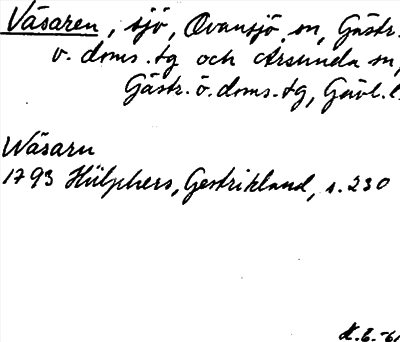 Väsaren, sjö, Ovansjö sn, Gästr.
v. doms.tg och Årsunda sn,
Gästr. ö. doms.tg, Gävl. l.
Wäsaru
1793 Hülphers, Gestrikland, s. 230